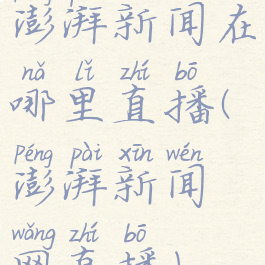 澎湃新闻在
nǎ lǐ zhí bō
哪里直播(
péng pài xīn wén
澎湃新闻
wǎng zhí bō
网直播)